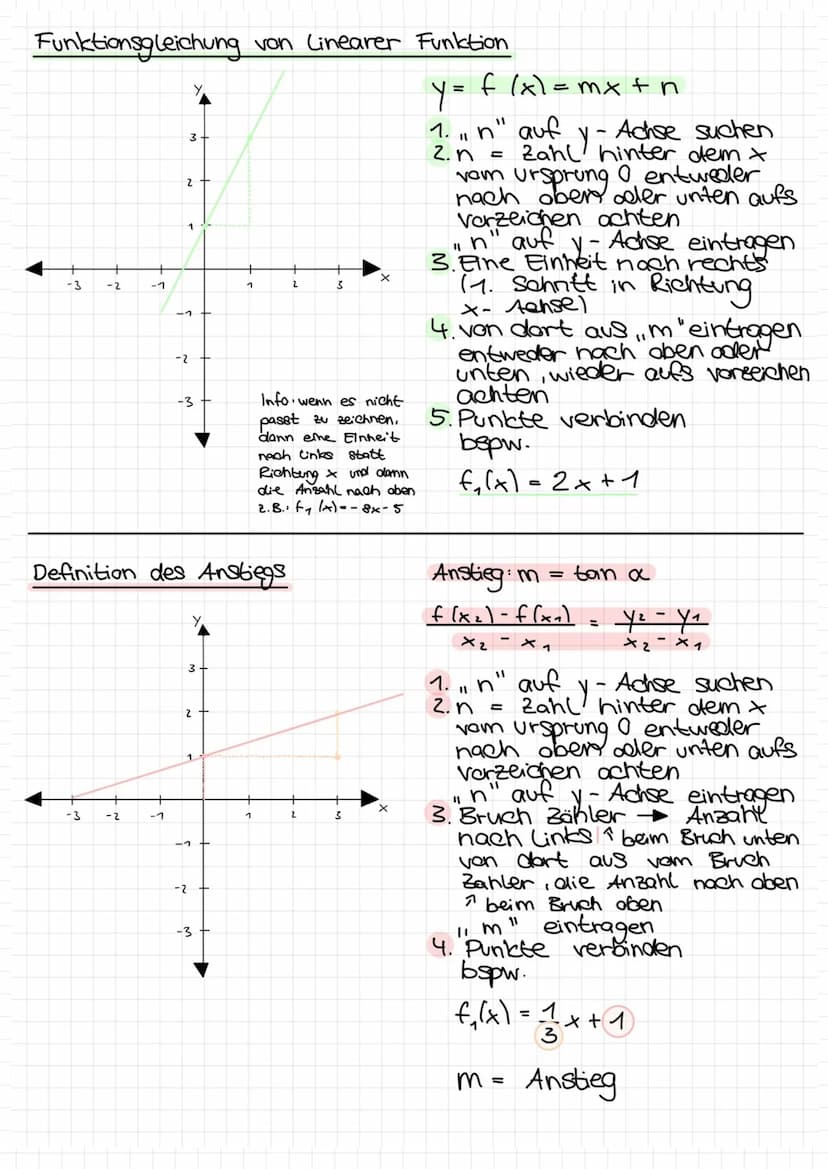 Funktionsgleichung von Linearer Funktion
y = f (x) = mx + n
1. „n" auf y - Achse suchen
2. n = Zahl hinter dem x
vom Ursprung 0 entweder
nach oben oder unten aufs
Vorzeichen achten
„n" auf y - Achse eintragen
3. Eine Einheit nach rechts
(1. Schritt in Richtung
x- Achse)
4. von dort aus „m" eintragen
entweder nach oben oder
unten, wieder aufs vorzeichen
achten
5. Punkte verbinden
bspw.
f₁(x) = 2x + 1
y
3
2
1
-3 -2 -1 1 2 3 x
-1
-2
-3
Info: wenn es nicht
passt zu zeichnen,
dann eine Einheit
nach Links statt
Richtung x und dann
die Anzahl nach oben
z.B.: f₁ (x) = - 8x - 5
Definition des Anstiegs
Anstieg: m = tan α
f (x₂) - f (x₁) = y₂ - y₁
x₂ - x₁ x₂ - x₁
1. „n" auf y - Achse suchen
2. n = Zahl hinter dem x
vom Ursprung 0 entweder
nach oben oder unten aufs
Vorzeichen achten
„n" auf y - Achse eintragen
3. Bruch Zähler → Anzahl
nach Links | ↑ beim Bruch unten
von dort aus vom Bruch
Zähler, die Anzahl nach oben
↑ beim Bruch oben
„m" eintragen
4. Punkte verbinden
bspw.
f₁(x) = 1/3 x + 1
m = Anstieg
y
3
2
1
-3 -2 -1 1 2 3 x
-1
-2
-3